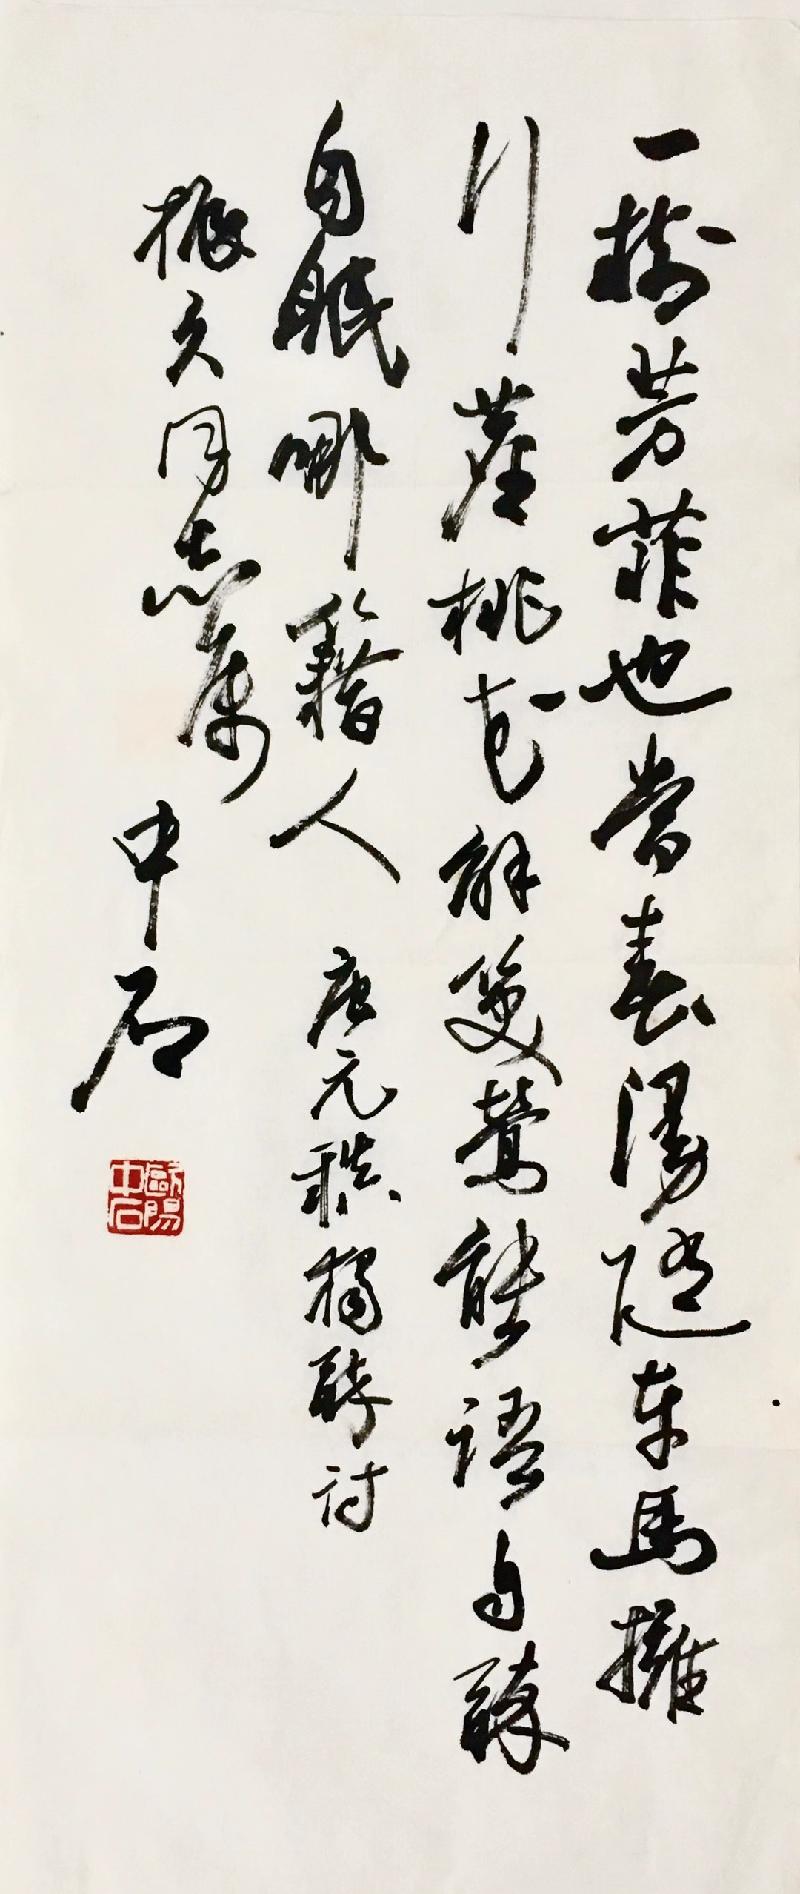 一樹芳菲也當春漫隨車馬擁
行塵桃花解笑鶯能語自醉
自眠哪籍人 唐元稹獨醉詩
振久同志属
中石
歐陽中石